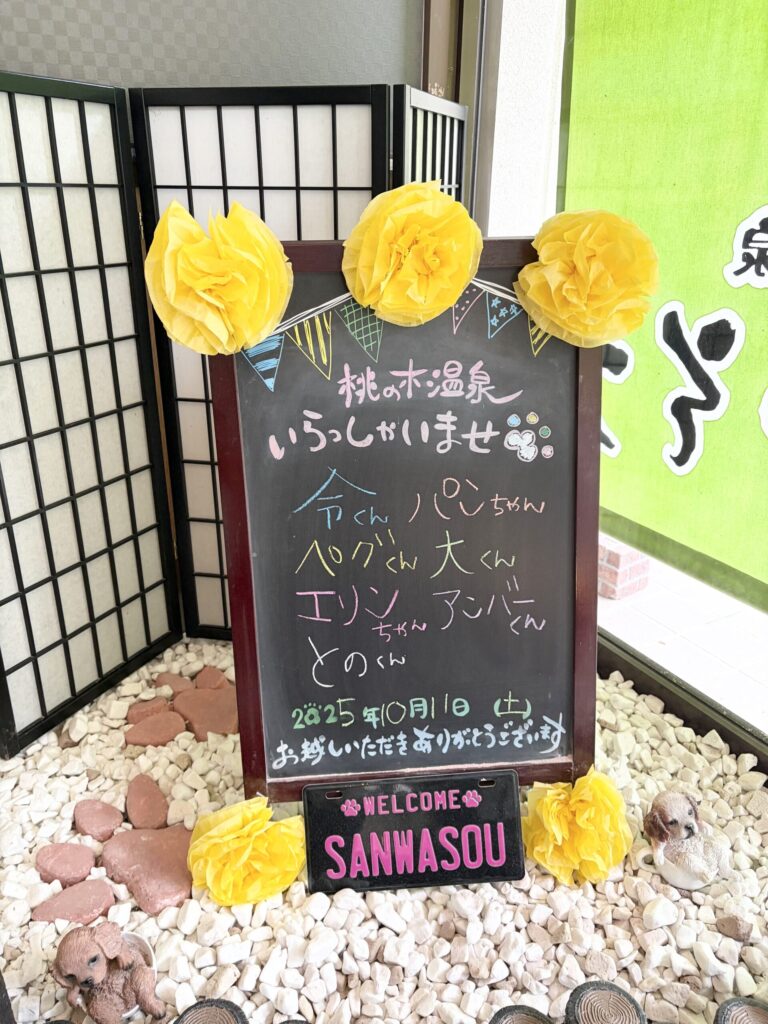 桃の木温泉
いらっしゃいませ
令くん パンちゃん
ペグくん 大くん
エリンちゃん アンバーくん
とのくん
2025年10月11日 (土)
お越しいただきありがとうございます
WELCOME
SANWASOU
泉